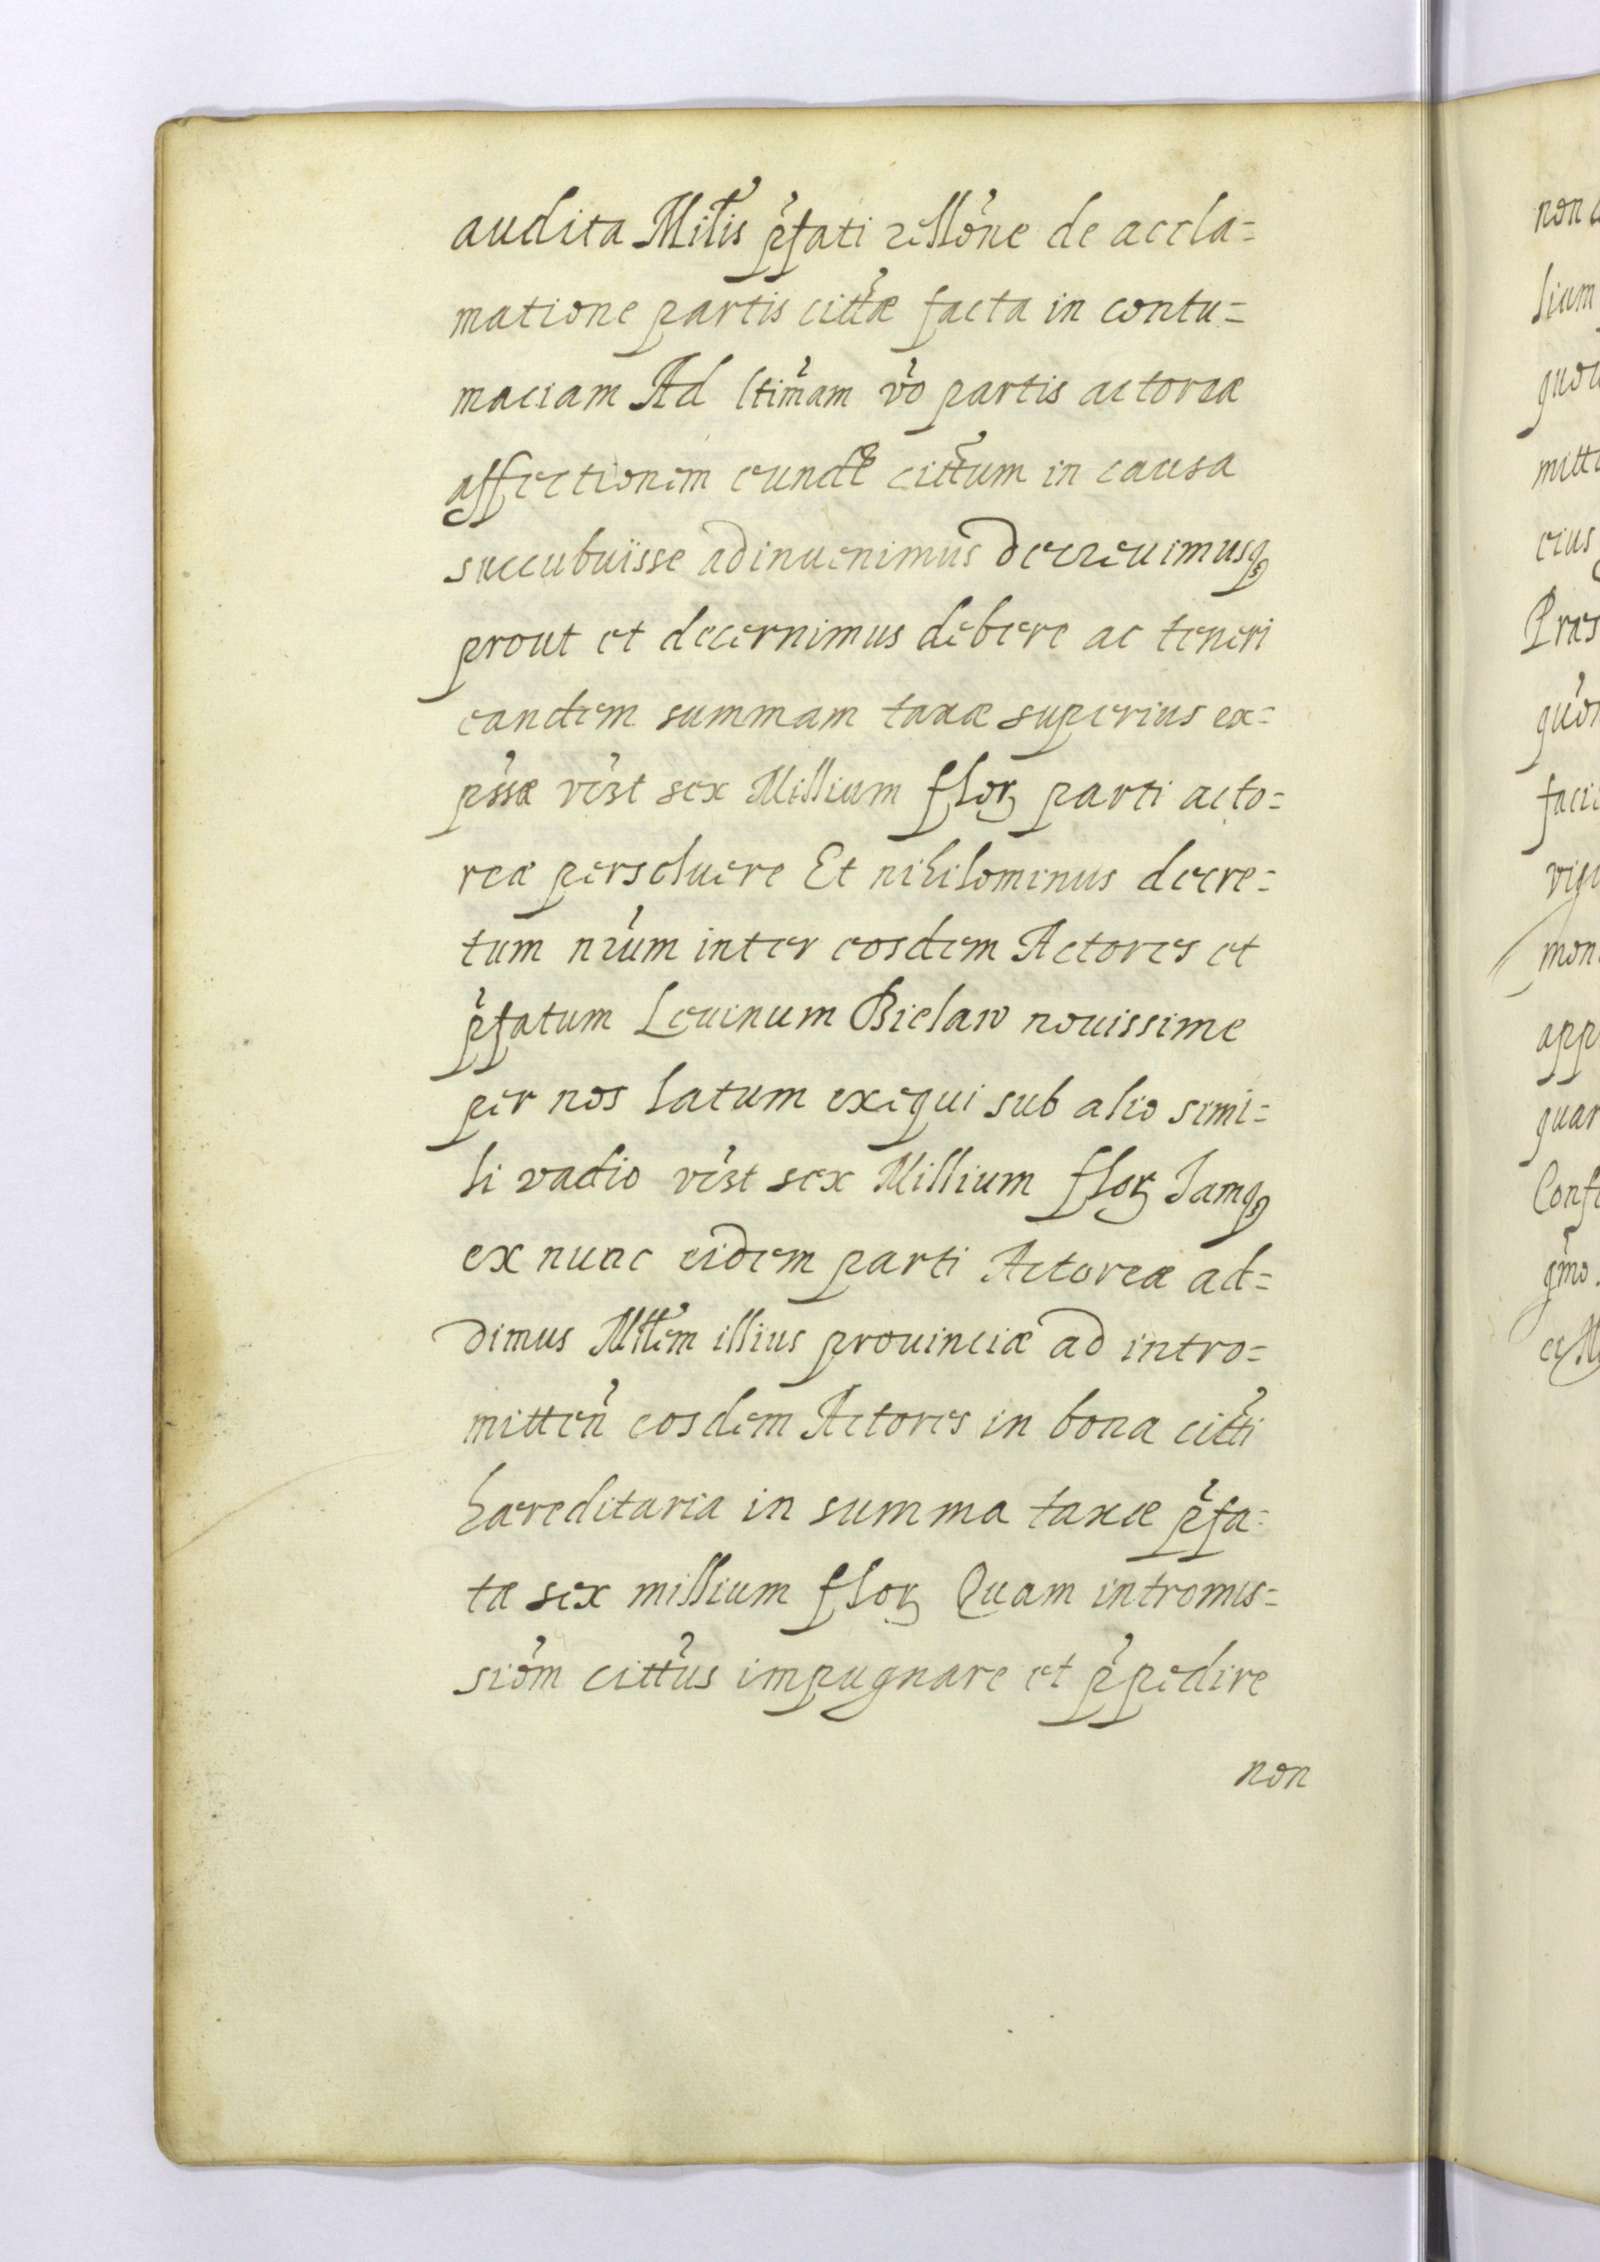 audita Mil̃tis p̃fati rell̃one de accla=
matione partis citt̃æ facta in contu=
maciam Ad ltim̃am ṽo partis actoreæ
affectionem eund̃e citt̃um in causa
succubuisse adinuenimus decreuimusq
prout et decernimus debere ac teneri
eandem summam taxæ superius ex=
p̃ssæ viz̃t sex Millium flor parti acto=
reæ persoluere Et nihilominus decre=
tum nr̃um inter eosdem Actores et
p̃fatum Leuinum Bielaw nouissime
per nos latum exequi sub alio simi=
li vadio viz̃t sex Millium flor Iamq
ex nunc eidem parti Actoreæ ad=
dimus Mil̃tem illius prouinciæ ad intro=
mitteñ eosdem Actores in bona citt̃i
hæreditaria in summa taxæ p̃fa=
tæ sex millium flor Quam intromis=
siõm citt̃us impugnare et p̃pedire
non
non
lium
mitt
eius
Præs
faci
mon
app
quar
Conf